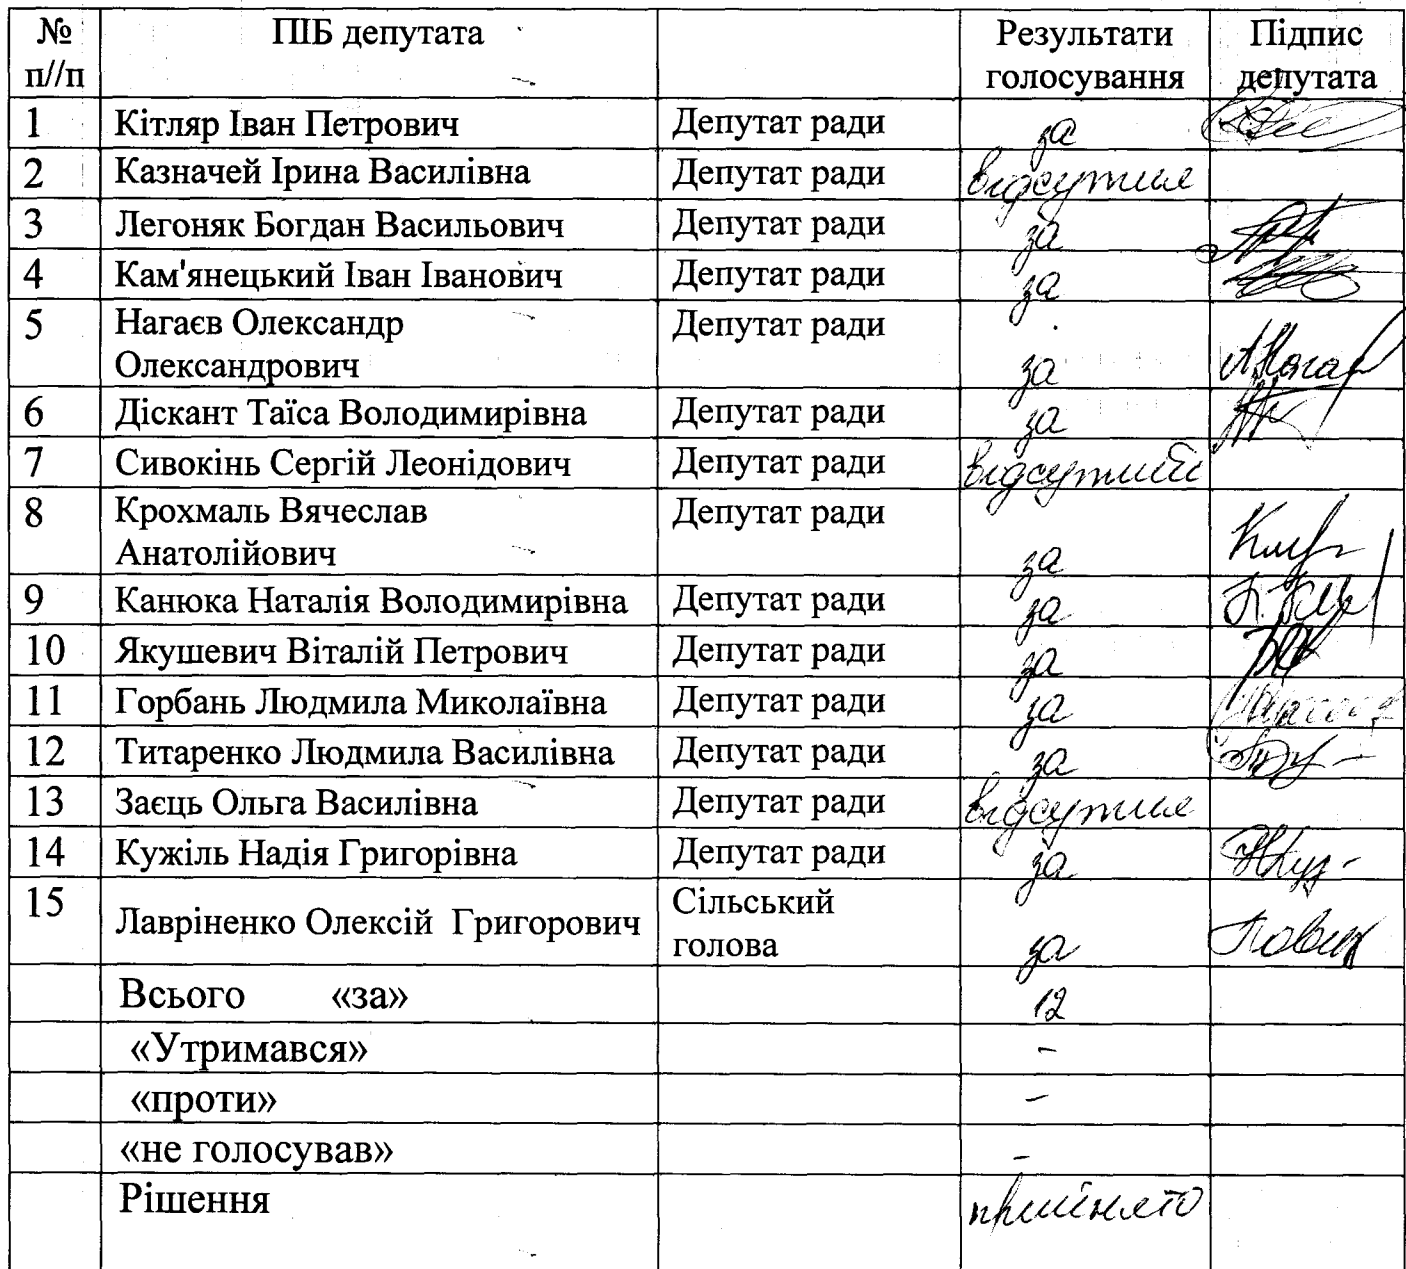 № ПІБ депутата Результати Підпис
п//п голосування депутата
1 Кітляр Іван Петрович Депутат ради за
2 Казначей Ірина Василівна Депутат ради відсутня
3 Легоняк Богдан Васильович Депутат ради за
4 Кам'янецький Іван Іванович Депутат ради за
5 Нагаєв Олександр Депутат ради
Олександрович за
6 Діскант Таїса Володимирівна Депутат ради за
7 Сивокінь Сергій Леонідович Депутат ради відсутній
8 Крохмаль Вячеслав Депутат ради
Анатолійович за
9 Канюка Наталія Володимирівна Депутат ради за
10 Якушевич Віталій Петрович Депутат ради за
11 Горбань Людмила Миколаївна Депутат ради за
12 Титаренко Людмила Василівна Депутат ради за
13 Заєць Ольга Василівна Депутат ради відсутня
14 Кужіль Надія Григорівна Депутат ради за
15 Лавріненко Олексій Григорович Сільський
голова за
Всього «за» 12
«Утримався» -
«проти» -
«не голосував» -
Рішення прийнято